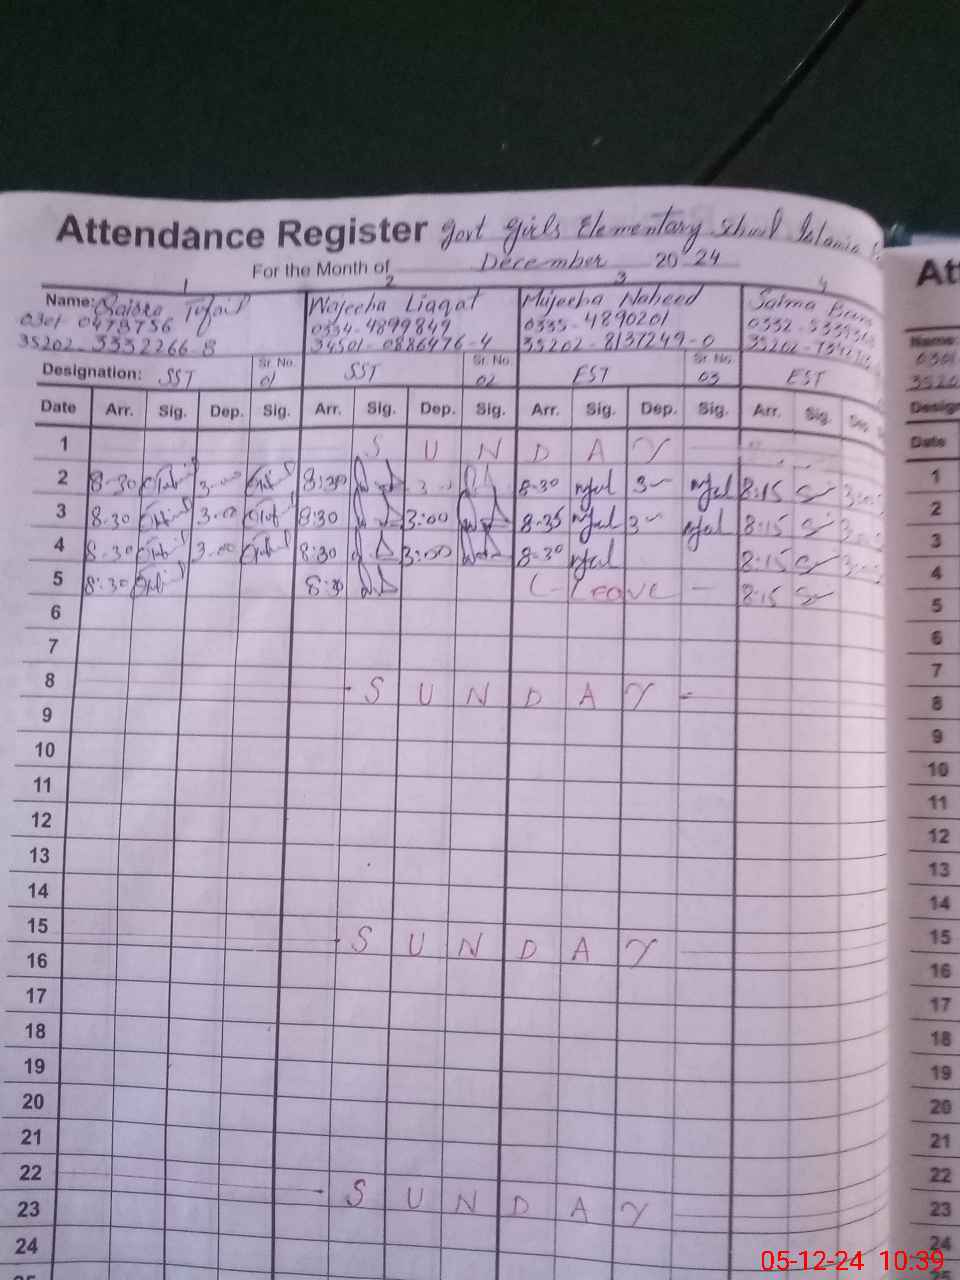 Attendance Register Govt Girls Elementary School Islamia
For the Month of December 2024
1 2 3 4
Name: Tufail Wajeeha Liaqat Mujeeba Naheed Salma
0301-0478756 0334-4899849 0335-4890201 0332-
35202-3332266-8 34501-0886476-4 35202-8137249-0 35202-
Designation: SST Sr. No. 01 SST Sr. No. 02 EST Sr. No. 03 EST
Date Arr. Sig. Dep. Sig. Arr. Sig. Dep. Sig. Arr. Sig. Dep. Sig. Arr. Sig. Dep.
1 S U N D A Y
2 8-30 3-00 8:30 3- 8-30 3- 8:15
3 8-30 3.00 8:30 3:00 8-35 3- 8:15
4 8-30 3.00 8:30 3:00 8-30 8:15
5 8:30 8:30 Leave 8:15
6
7
8 S U N D A Y
9
10
11
12
13
14
15 S U N D A Y
16
17
18
19
20
21
22 S U N D A Y
23
24
Att
Name:
Date
1
2
3
4
5
6
7
8
9
10
11
12
13
14
15
16
17
18
19
20
21
22
23
24
05-12-24 10:39